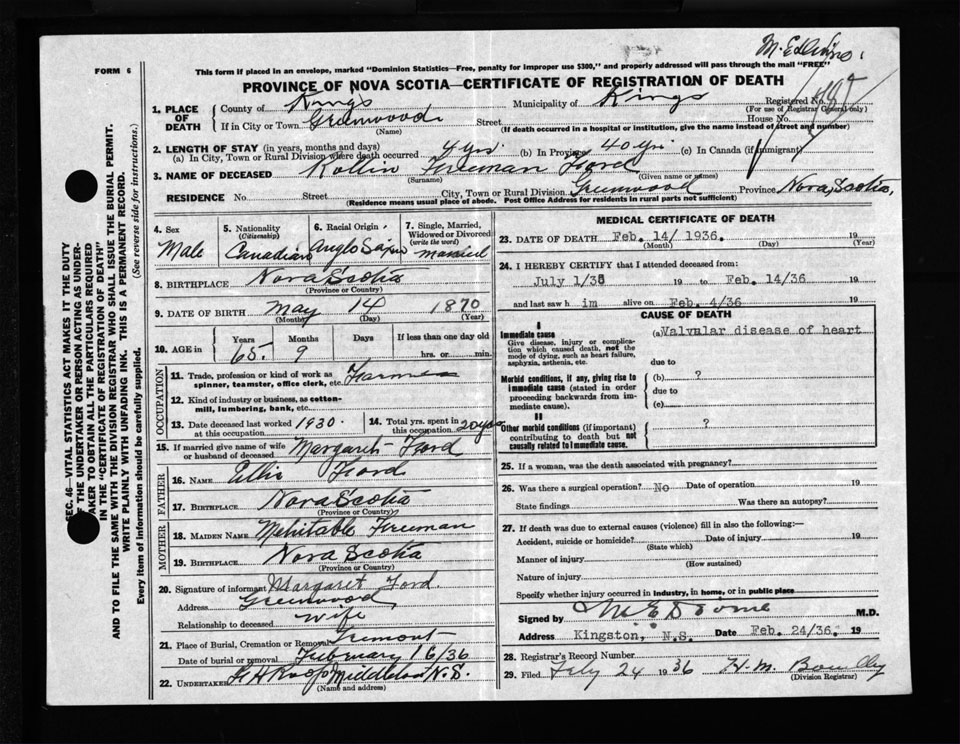 M. E. D
FORM 6
This form if placed in an envelope, marked "Dominion Statistics—Free, penalty for improper use $300," and properly addressed will pass through the mail "FREE"
PROVINCE OF NOVA SCOTIA—CERTIFICATE OF REGISTRATION OF DEATH
1. PLACE OF DEATH
County of Kings Municipality of Kings Registered No.
(For use of Registrar General only)
If in City or Town Greenwood Street House No.
(Name) (If death occurred in a hospital or institution, give the name instead of street and number)
2. LENGTH OF STAY (in years, months and days)
(a) In City, Town or Rural Division where death occurred 4 yrs. (b) In Province 40 yrs. (c) In Canada (if immigrant)
3. NAME OF DECEASED Rollin Freeman Ford
(Surname) (Given name or names)
RESIDENCE No. Street City, Town or Rural Division Greenwood Province Nova Scotia,
(Residence means usual place of abode. Post Office Address for residents in rural parts not sufficient)
4. Sex
Male
5. Nationality
(Citizenship)
Canadian
6. Racial Origin
Anglo Saxon
7. Single, Married, Widowed or Divorced
(write the word)
Married
8. BIRTHPLACE Nova Scotia
(Province or Country)
9. DATE OF BIRTH May 14 1870
(Month) (Day) (Year)
10. AGE in
Years Months If less than one day old
65 9 hrs. or min.
OCCUPATION
11. Trade, profession or kind of work as spinner, teamster, office clerk, etc. Farmer
12. Kind of industry or business, as cotton-mill, lumbering, bank, etc.
13. Date deceased last worked at this occupation 1930
14. Total yrs. spent in this occupation 20 yrs
15. If married give name of wife or husband of deceased Margaret Ford
FATHER
16. NAME Ellis Ford
17. BIRTHPLACE Nova Scotia
(Province or Country)
MOTHER
18. MAIDEN NAME Mehitable Freeman
19. BIRTHPLACE Nova Scotia
(Province or Country)
20. Signature of informant Margaret Ford.
Address Greenwood,
Relationship to deceased wife
21. Place of Burial, Cremation or Removal Tremont
Date of burial or removal February 16/36
22. UNDERTAKER Middleton N.S.
(Name and address)
MEDICAL CERTIFICATE OF DEATH
23. DATE OF DEATH Feb. 14/ 1936. 19
(Month) (Day) (Year)
24. I HEREBY CERTIFY that I attended deceased from:
July 1/35 19 to Feb. 14/36 19
and last saw h im alive on Feb. 4/36 19
CAUSE OF DEATH
I
Immediate cause
Give disease, injury or complication which caused death, not the mode of dying, such as heart failure, asphyxia, asthenia, etc.
(a) Valvular disease of heart
due to
Morbid conditions, if any, giving rise to immediate cause (stated in order proceeding backwards from immediate cause).
(b) ?
due to
(c)
II
Other morbid conditions (if important) contributing to death but not causally related to immediate cause.
?
25. If a woman, was the death associated with pregnancy?
26. Was there a surgical operation? No Date of operation 19
State findings Was there an autopsy?
27. If death was due to external causes (violence) fill in also the following:—
Accident, suicide or homicide? Date of injury 19
(State which)
Manner of injury
(How sustained)
Nature of injury
Specify whether injury occurred in industry, in home, or in public place
Signed by M.D.
Address Kingston, N.S. Date Feb. 24/36. 19
28. Registrar's Record Number
29. Filed 24 1936 H. M.
(Division Registrar)
SEC. 46—VITAL STATISTICS ACT MAKES IT THE DUTY
OF THE UNDERTAKER OR PERSON ACTING AS UNDER-
TAKER TO OBTAIN ALL THE PARTICULARS REQUIRED
IN THE "CERTIFICATE OF REGISTRATION OF DEATH"
AND TO FILE THE SAME WITH THE DIVISION REGISTRAR WHO SHALL ISSUE THE BURIAL PERMIT.
WRITE PLAINLY WITH UNFADING INK. THIS IS A PERMANENT RECORD.
Every item of information should be carefully supplied. (See reverse side for instructions.)